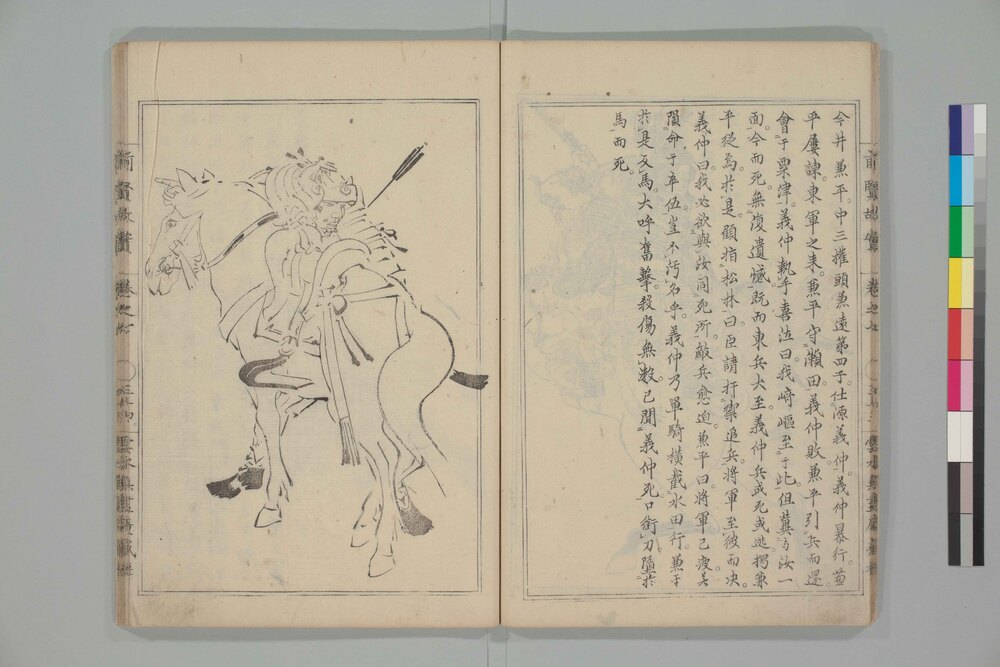 今井兼平。中三權頭兼遠第四子。仕源義仲。義仲暴行。兼
平屢諫東軍之来。兼平守瀬田義仲敗兼平引兵而還。
會于粟津。義仲執手喜泣曰。我崎嶇至于此但冀与汝一
面。今而死無復遺憾。既而東兵大至。義仲兵或死或逃。獨兼
平從焉。於是顧指松林曰。臣請拒禦追兵將軍至彼而决。
義仲曰我必欲與汝同死所。敵兵愈迫。兼平曰。將軍已疲
隕命于卒伍豈不汚名乎。義仲乃單騎横截水田行。兼平
於是立馬大呼奮撃殺傷無數。已聞義仲死。口銜刀墮於
馬而死。
前賢故實
卷之七